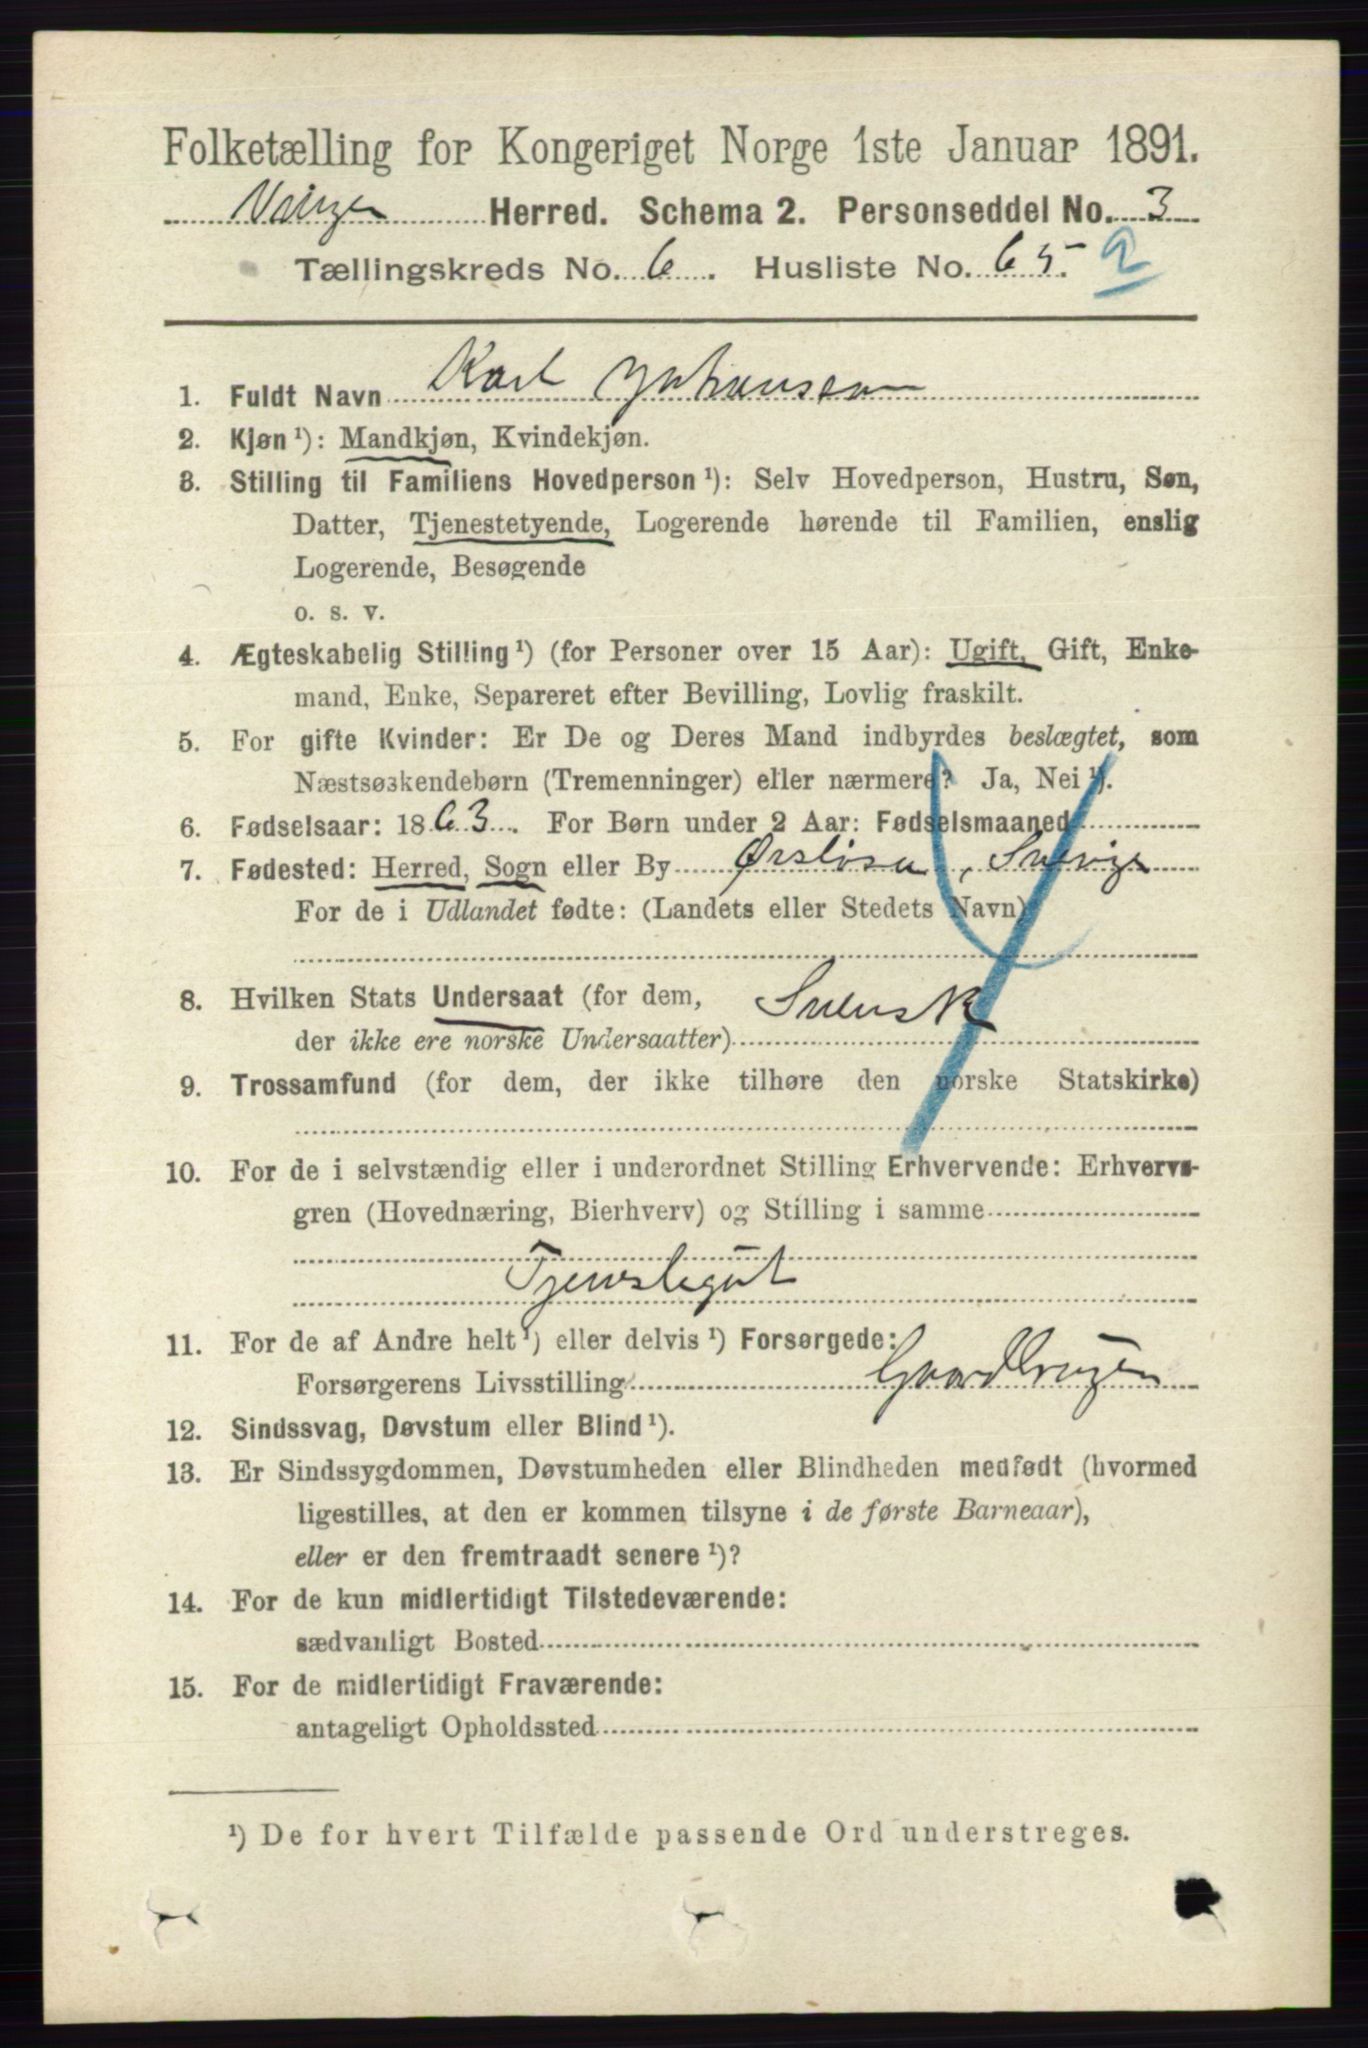 Folketælling for Kongeriget Norge 1ste Januar 1891.
Vinger Herred. Schema 2. Personseddel No. 3
Tællingskreds No. 6. Husliste No. 65. 2
1. Fuldt Navn Karl Johansen
2. Kjøn ¹): Mandkjøn, Kvindekjøn.
3. Stilling til Familiens Hovedperson ¹): Selv Hovedperson, Hustru, Søn,
Datter, Tjenestetyende, Logerende hørende til Familien, enslig
Logerende, Besøgende
o. s. v.
4. Ægteskabelig Stilling ¹) (for Personer over 15 Aar): Ugift, Gift, Enke-
mand, Enke, Separeret efter Bevilling, Lovlig fraskilt.
5. For gifte Kvinder: Er De og Deres Mand indbyrdes beslægtet, som
Næstsøskendebørn (Tremenninger) eller nærmere? Ja, Nei ¹).
6. Fødselsaar: 1863. For Børn under 2 Aar: Fødselsmaaned
7. Fødested: Herred, Sogn eller By Ørslösa, Sverige
For de i Udlandet fødte: (Landets eller Stedets Navn)
8. Hvilken Stats Undersaat (for dem, Svensk
der ikke ere norske Undersaatter)
9. Trossamfund (for dem, der ikke tilhøre den norske Statskirke)
10. For de i selvstændig eller i underordnet Stilling Erhvervende: Erhvervs-
gren (Hovednæring, Bierhverv) og Stilling i samme
Tjenstegut
11. For de af Andre helt ¹) eller delvis ¹) Forsørgede:
Forsørgerens Livsstilling Gaardbruger
12. Sindssvag, Døvstum eller Blind ¹).
13. Er Sindssygdommen, Døvstumheden eller Blindheden medfødt (hvormed
ligestilles, at den er kommen tilsyne i de første Barneaar),
eller er den fremtraadt senere ¹)?
14. For de kun midlertidigt Tilstedeværende:
sædvanligt Bosted
15. For de midlertidigt Fraværende:
antageligt Opholdssted
¹) De for hvert Tilfælde passende Ord understreges.